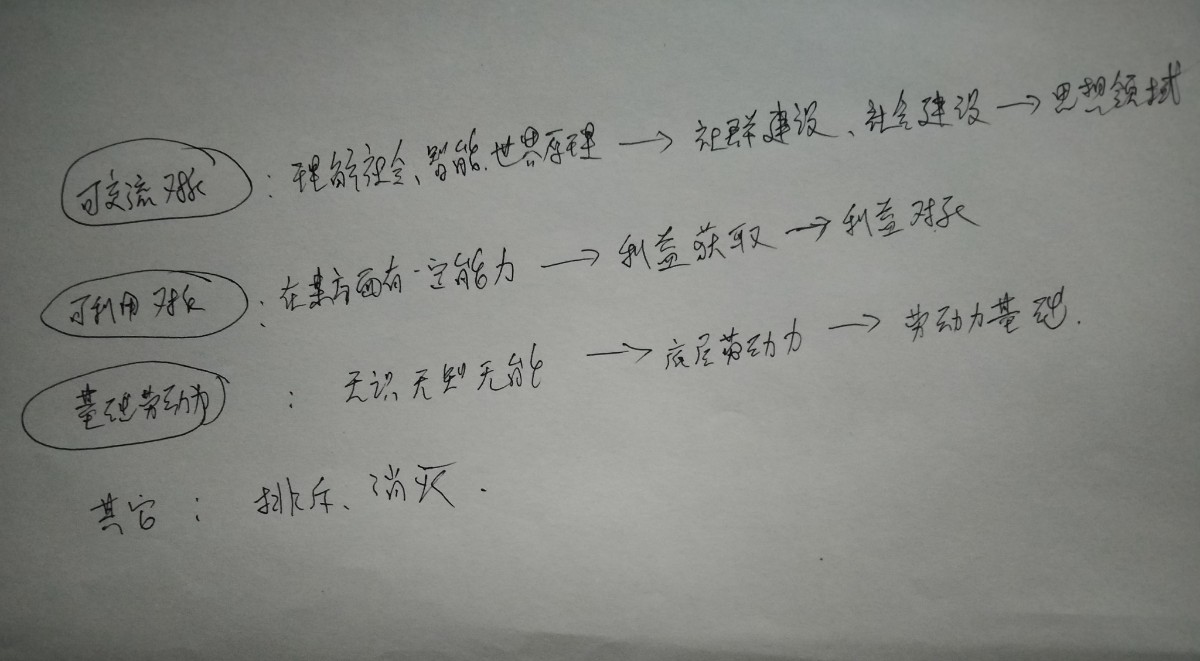 可交流对象：理解社会、智能、世界原理→社群建设、社会建设→思想领域
可利用对象：在某方面有一定能力→利益获取→利益对象
基础劳动力：无识无别无能→底层劳动力→劳动力基础.
其它：排斥、消灭.